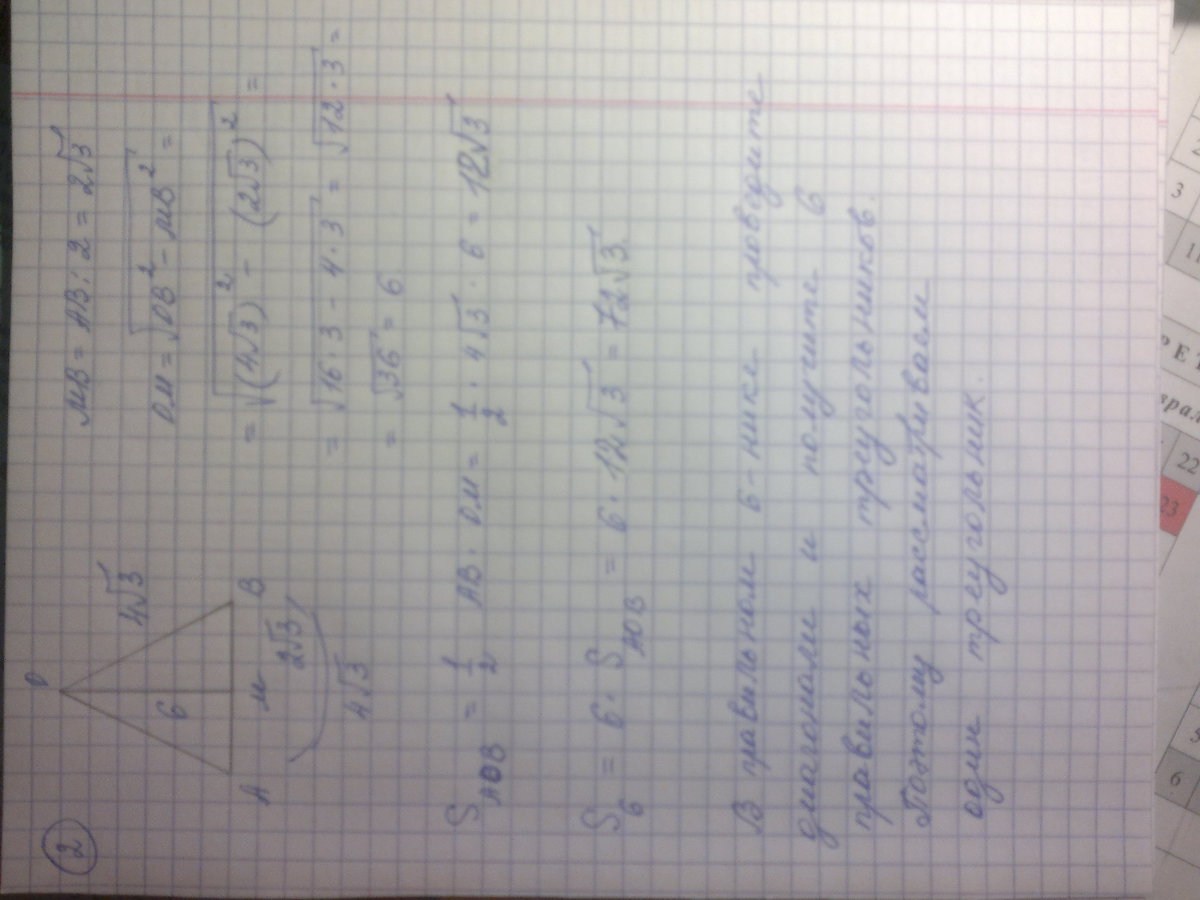 2
O
4√3
6
A
M
B
2√3
4√3
MB = AB : 2 = 2√3
OM = √OB² - MB² =
= √(4√3)² - (2√3)² =
= √16·3 - 4·3 = √12·3 =
= √36 = 6
S AOB = 1/2 AB · OM = 1/2 · 4√3 · 6 = 12√3
S6 = 6 · S AOB = 6 · 12√3 = 72√3.
В правильном 6-нике проводите
диагонали и получите 6
правильных треугольников.
Поэтому рассматриваем
один треугольник.
3
11
РЕТ
врал
22
23
5
6